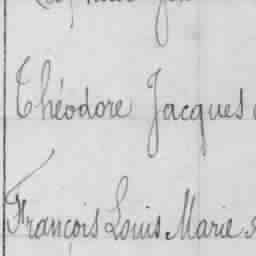 Théodore Jacques
François Louis Marie